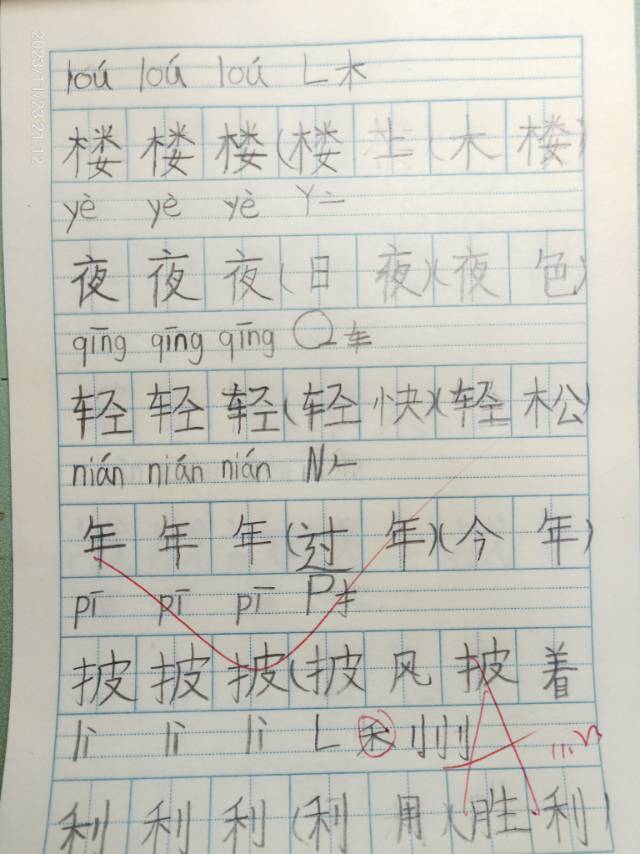 lóu lóu lóu L 木
楼 楼 楼 (楼 上 (木 楼)
yè yè yè Y 亠
夜 夜 夜 (日 夜)(夜 色)
qīng qīng qīng Q 车
轻 轻 轻 (轻 快)(轻 松)
nián nián nián N 𠂉
年 年 年 (过 年)(今 年)
pī pī pī P 扌
披 披 披 (披 风 披 着
lì lì lì L 禾 刂 刂 刂
利 利 利 (利 用 (胜 利)
A